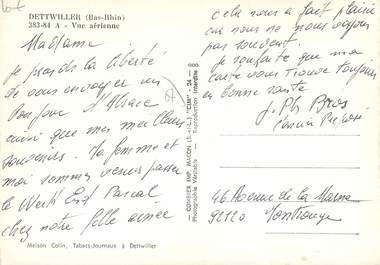 DETTWILLER (Bas-Rhin)
383-84 A - Vue aérienne
Madame
je prends la liberté
de vous envoyer un
Bonjour d'Alsace
ainsi que mes meilleurs
souvenirs. La femme et
moi sommes venus passer
le Week End Pascal
chez notre fille ainée
Maison Colin, Tabacs-Journaux à Dettwiller
COMBIER IMP. MACON (S.-et-L.) "CIM"
Photographie Véritable - Reproduction Interdite
cela nous a fait plaisir
car nous ne nous voyons
pas souvent.
Je souhaite que ma
carte vous trouve toujours
en bonne santé
J. Ph
46 Avenue de la Marne
92120 Montrouge